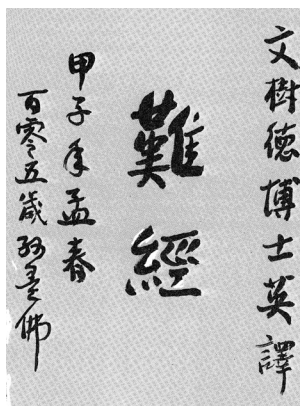 文樹德博士英譯
難經
甲子年孟春
百零五歲孫墨佛